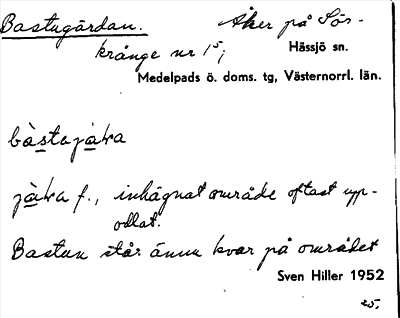 Bastugårdan. Åker på Sös-
krånge nr 15; Hässjö sn.
Medelpads ö. doms. tg, Västernorrl. län.
bàstajàka
jàka f., inhägnat område oftast upp-
odlat.
Bastun står ännu kvar på området
Sven Hiller 1952
25.